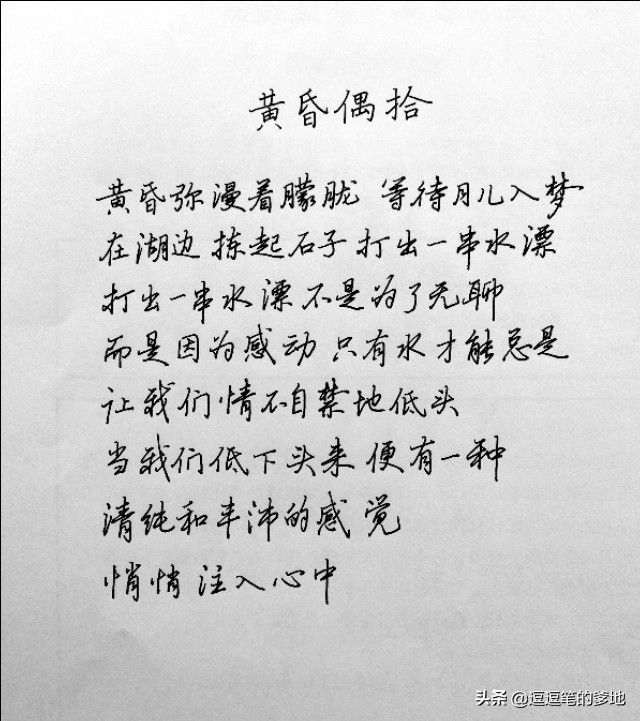 黄昏偶拾
黄昏弥漫着朦胧 等待月儿入梦
在湖边 拣起石子 打出一串水漂
打出一串水漂 不是为了无聊
而是因为感动 只有水才能总是
让我们情不自禁地低头
当我们低下头来 便有一种
清纯和丰沛的感觉
悄悄注入心中
头条 @逗逗笔的爹地